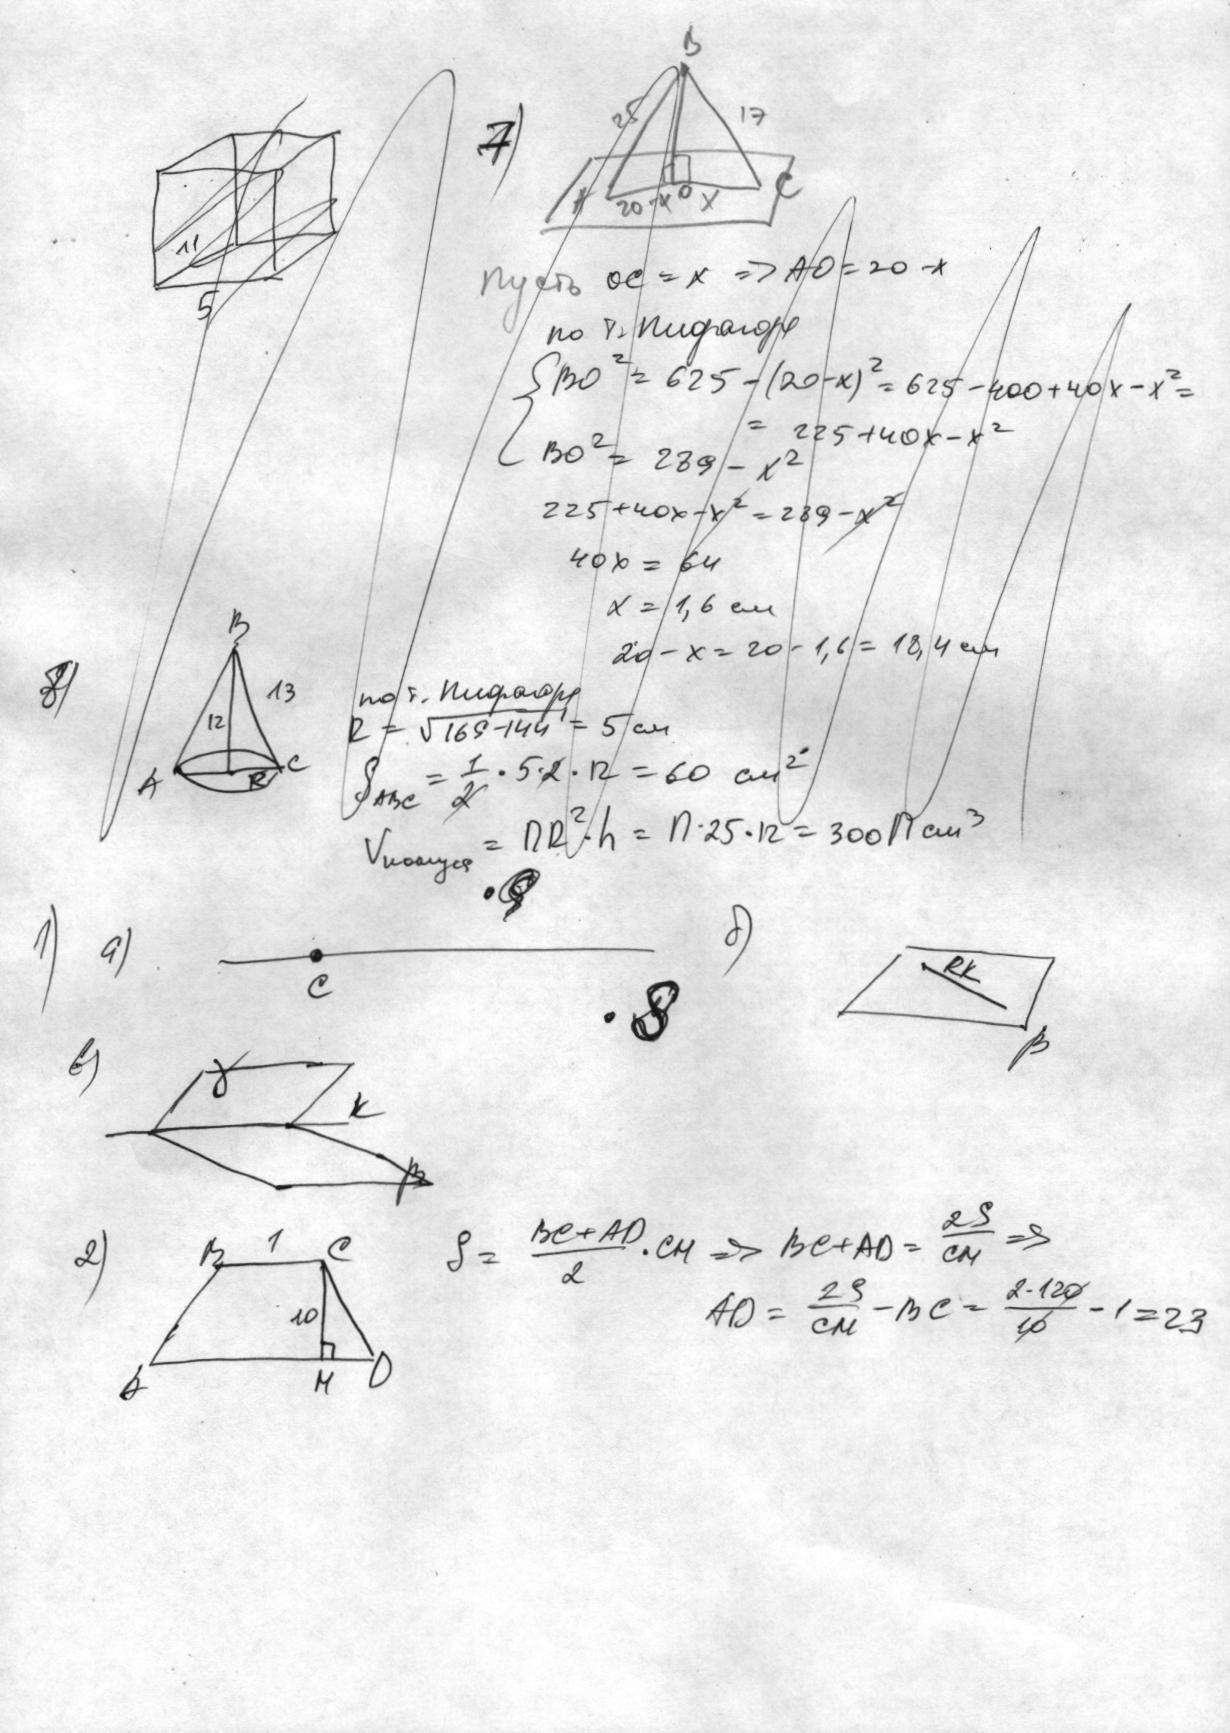 11
5
7)
B
25
17
A
20-x
O
x
C
Пусть OC = x => AO = 20-x
по т. Пифагора
{BO² = 625-(20-x)² = 625-400+40x-x² =
= 225+40x-x²
BO² = 289-x²
225+40x-x² = 289-x²
40x = 64
x = 1,6 см
20-x = 20-1,6 = 18,4 см
8)
B
13
12
A
R
C
по т. Пифагора
R = √169-144 = 5 см
S_ABC = 1/2 · 5·2 · 12 = 60 см²
V_конуса = ПR²·h = П·25·12 = 300П см³
1)
а)
C
б)
RK
β
в)
γ
K
β
2)
B
1
C
10
A
M
D
S = (BC+AD)/2 · CM => BC+AD = 2S/CM =>
AD = 2S/CM - BC = 2·120/10 - 1 = 23